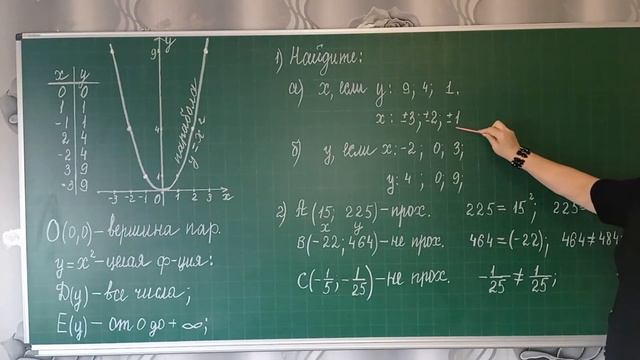 x y
0 0
1 1
-1 1
2 4
-2 4
3 9
-3 9
y
9
4
1
-3 -2 -1 0 1 2 3 x
парабола
y = x²
O(0,0) – вершина пар.
y = x² – целая ф-ция:
D(y) – все числа;
E(y) – от 0 до + ∞;
1) Найдите:
а) x, если y: 9, 4; 1.
x: ±3; ±2; ±1
б) y, если x: -2; 0; 3;
y: 4; 0; 9;
2) A(15; 225) – прох. 225 = 15²; 225=
x y
B(-22; 464) – не прох. 464 = (-22); 464 ≠ 484
C(-1/5; -1/25) – не прох. -1/25 ≠ 1/25;